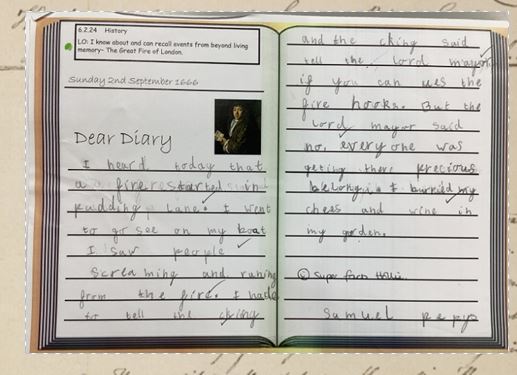 6.2.24 History
LO: I know about and can recall events from beyond living
memory- The Great Fire of London.
Sunday 2nd September 1666
Dear Diary
I heard today that
a fire started in
pudding Lane. I went
to go see on my boat
I saw people
screaming and runing
from the fire. I had
to tell the cking
and the cking said
tell the lord mayor
if you can ues the
fire hooks. But the
Lord mayor said
no, every one was
geting there precious
belongings I burried my
chees and wine in
my garden.
Super facts
Samuel pepys